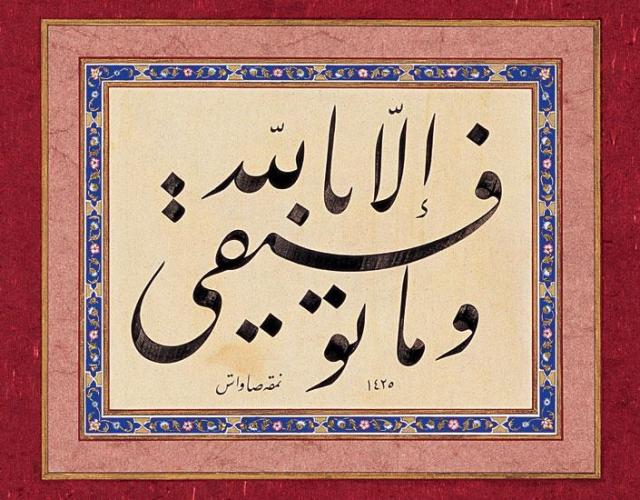 وما توفيقي إلّا بالله
نمقه صاواش
١٤٢٥